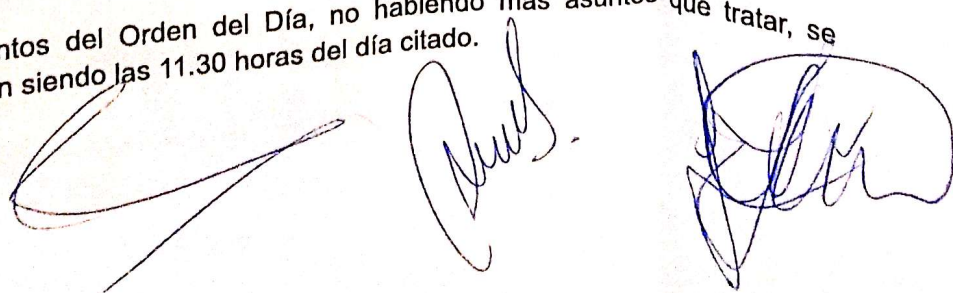 ntos del Orden del Día, no habiendo más asuntos que tratar, se
n siendo las 11.30 horas del día citado.